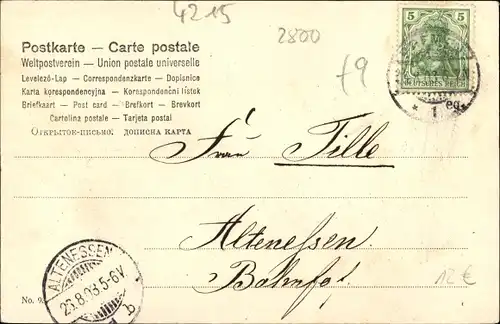 4215
2800
f9
5
DEUTSCHES REICH
* 1 eg.
Postkarte — Carte postale
Weltpostverein — Union postale universelle
Levelező-Lap — Correspondenzkarte — Dopisnice
Karta korespondencyjna — Korespondenční lístek
Briefkaart — Post card — Brefkort — Brevkort
Cartolina postale — Tarjeta postal
Открытое-письмо. дописна карта
Frau Tille
Altenessen.
Bahnhof.
ALTENESSEN
26.8.03.5-6V.
b
No. 9.
12 €